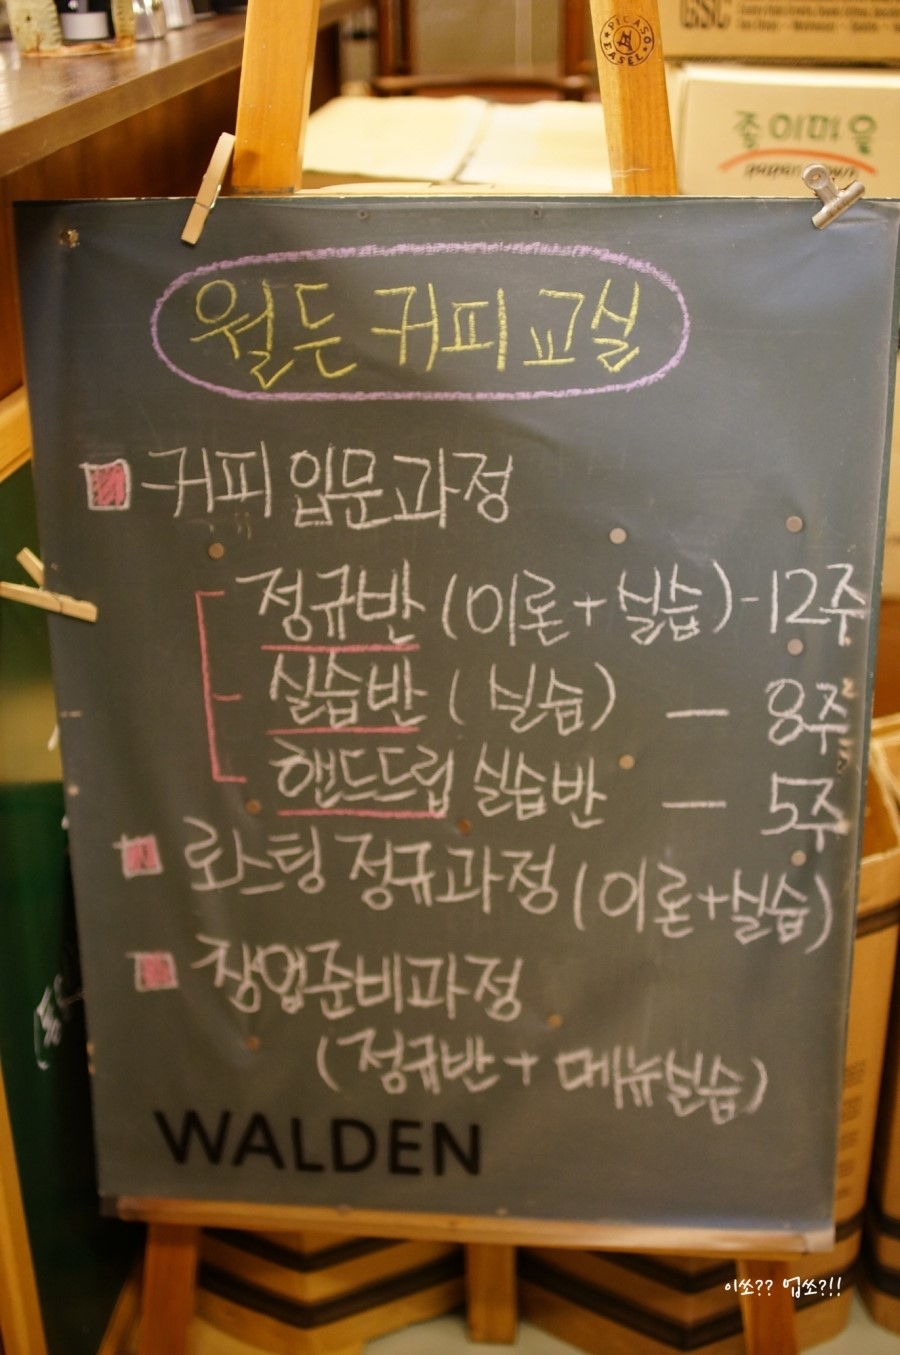 PICASO EASEL
GSC
종이마을
월든 커피 교실
커피 입문과정
정규반 (이론+실습)-12주
실습반 (실습) — 8주
핸드드립 실습반 — 5주
로스팅 정규과정 (이론+실습)
창업준비과정
(정규반+메뉴실습)
WALDEN
이쏘?? 업쏘?!!